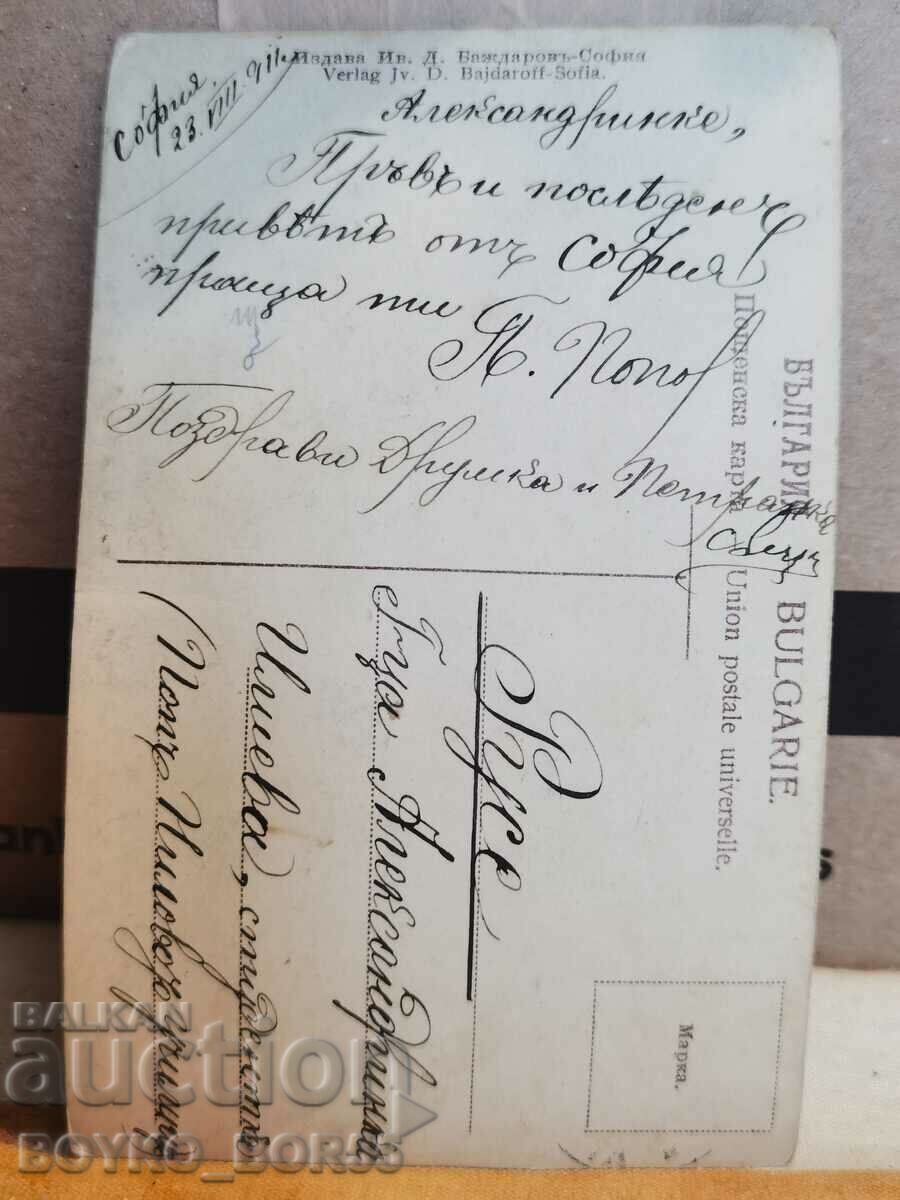 Издава Ив. Д. Баждаровъ-София
Verlag Jv. D. Bajdaroff-Sofia.
София
23.VIII.911
Александринке,
Пръвъ и послѣденъ
привѣтъ отъ София
праща ти
П. Попов
Поздрави Друмка и Петранка
БЪЛГАРИЯ BULGARIE.
Пощенска карта Union postale universelle.
Русе
Г-ца Александринка
Илиева, студентка
(Попъ
Марка.
BALKAN
auction
BOYKO_BOR55